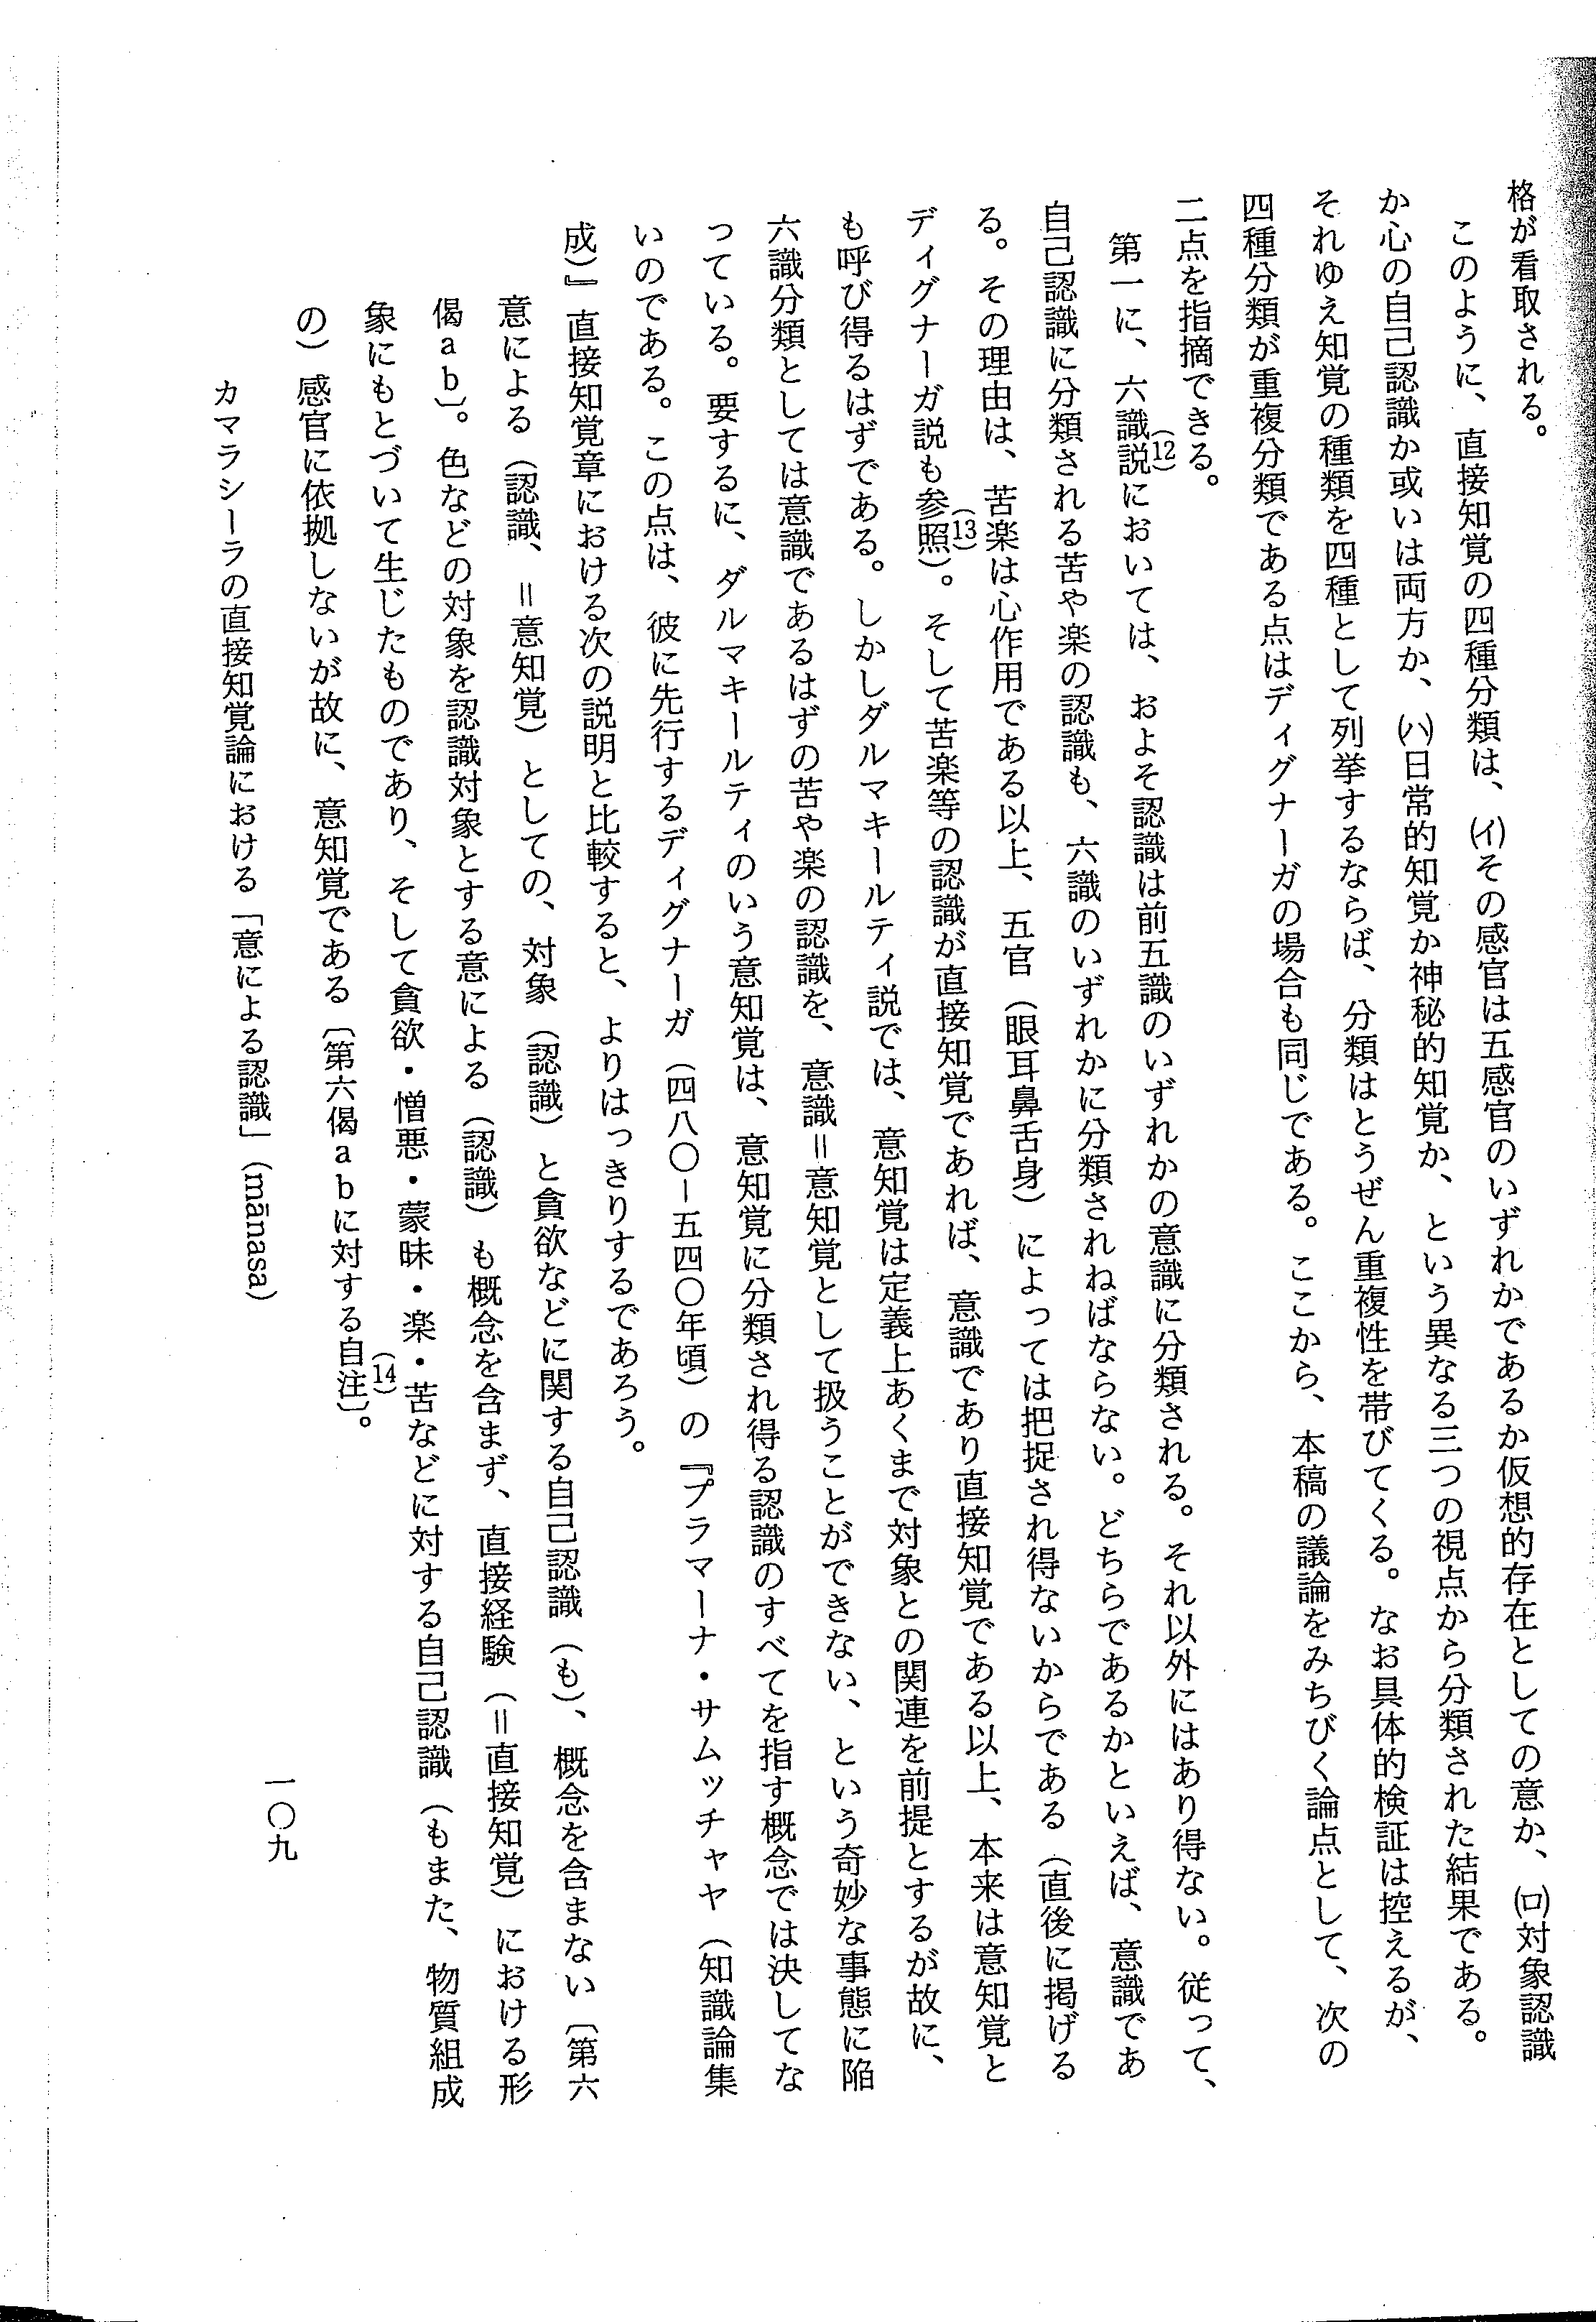 格が看取される。
このように、直接知覚の四種分類は、(イ)その感官は五感官のいずれかであるか仮想的存在としての意か、(ロ)対象認識
か心の自己認識か或いは両方か、(ハ)日常的知覚か神秘的知覚か、という異なる三つの視点から分類された結果である。
それゆえ知覚の種類を四種として列挙するならば、分類はとうぜん重複性を帯びてくる。なお具体的検証は控えるが、
四種分類が重複分類である点はディグナーガの場合も同じである。ここから、本稿の議論をみちびく論点として、次の
二点を指摘できる。
第一に、六識説(12)においては、およそ認識は前五識のいずれかの意識に分類される。それ以外にはあり得ない。従って、
自己認識に分類される苦や楽の認識も、六識のいずれかに分類されねばならない。どちらであるかといえば、意識であ
る。その理由は、苦楽は心作用である以上、五官（眼耳鼻舌身）によっては把捉され得ないからである（直後に掲げる
ディグナーガ説も参照(13)）。そして苦楽等の認識が直接知覚であれば、意識であり直接知覚である以上、本来は意知覚と
も呼び得るはずである。しかしダルマキールティ説では、意知覚は定義上あくまで対象との関連を前提とするが故に、
六識分類としては意識であるはずの苦や楽の認識を、意識＝意知覚として扱うことができない、という奇妙な事態に陥
っている。要するに、ダルマキールティのいう意知覚は、意知覚に分類され得る認識のすべてを指す概念では決してな
いのである。この点は、彼に先行するディグナーガ（四八〇－五四〇年頃）の『プラマーナ・サムッチャヤ（知識論集
成）』直接知覚章における次の説明と比較すると、よりはっきりするであろう。
意による（認識、＝意知覚）としての、対象（認識）と貪欲などに関する自己認識（も）、概念を含まない〔第六
偈ａｂ〕。色などの対象を認識対象とする意による（認識）も概念を含まず、直接経験（＝直接知覚）における形
象にもとづいて生じたものであり、そして貪欲・憎悪・蒙昧・楽・苦などに対する自己認識（もまた、物質組成
の）感官に依拠しないが故に、意知覚である〔第六偈ａｂに対する自注(14)〕。
カマラシーラの直接知覚論における「意による認識」（mānasa）
一〇九